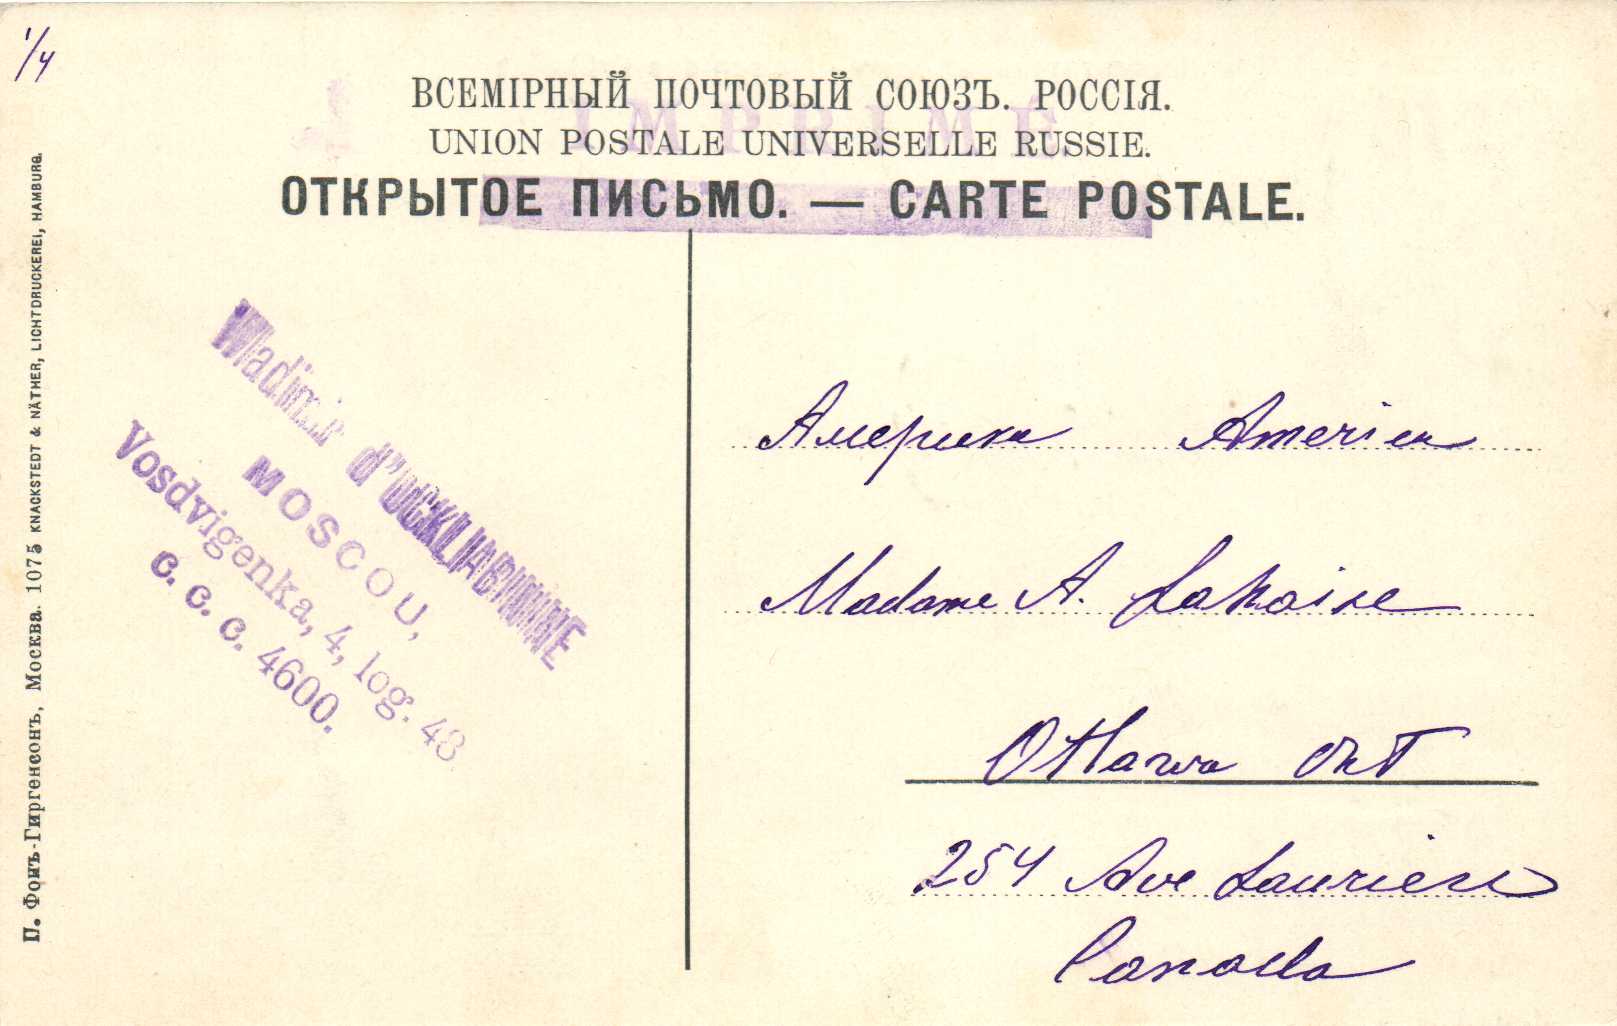 1/4
ВСЕМІРНЫЙ ПОЧТОВЫЙ СОЮЗЪ. РОССІЯ.
UNION POSTALE UNIVERSELLE RUSSIE.
ОТКРЫТОЕ ПИСЬМО. — CARTE POSTALE.
IMPRIMÉ
П. Фонъ-Гиргенсонъ, Москва. 1075 KNACKSTEDT & NÄTHER, LICHTDRUCKEREI, HAMBURG.
Wladimir
MOSCOU,
Vosdvigenka, 4, log. 48
c. c. c. 4600.
Америка America
Madame A.
Ottawa Ont
254 Ave
Canada